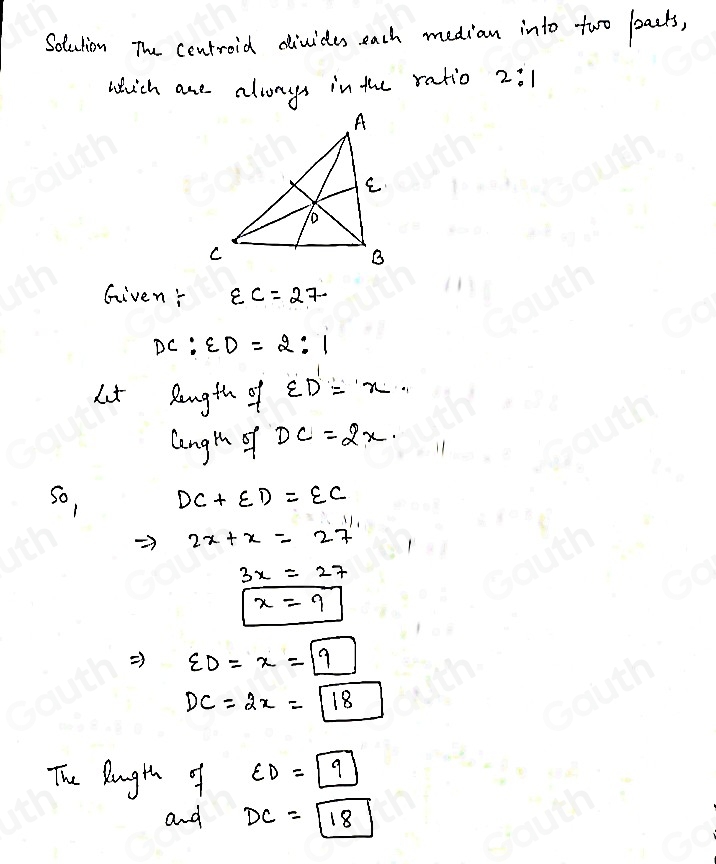 Solution The centroid divides each median into two parts,
which are always in the ratio 2:1
A
E
D
C
B
Given: EC = 27
DC : ED = 2 : 1
Let length of ED = x.
length of DC = 2x.
So, DC + ED = EC
⇒ 2x + x = 27
3x = 27
x = 9
⇒ ED = x = 9
DC = 2x = 18
The length of ED = 9
and DC = 18